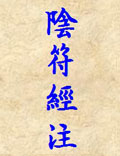 陰符經注